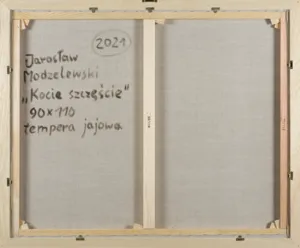 2021
Jarosław
Modzelewski
„Kocie szczęście"
90x110
tempera jajowa